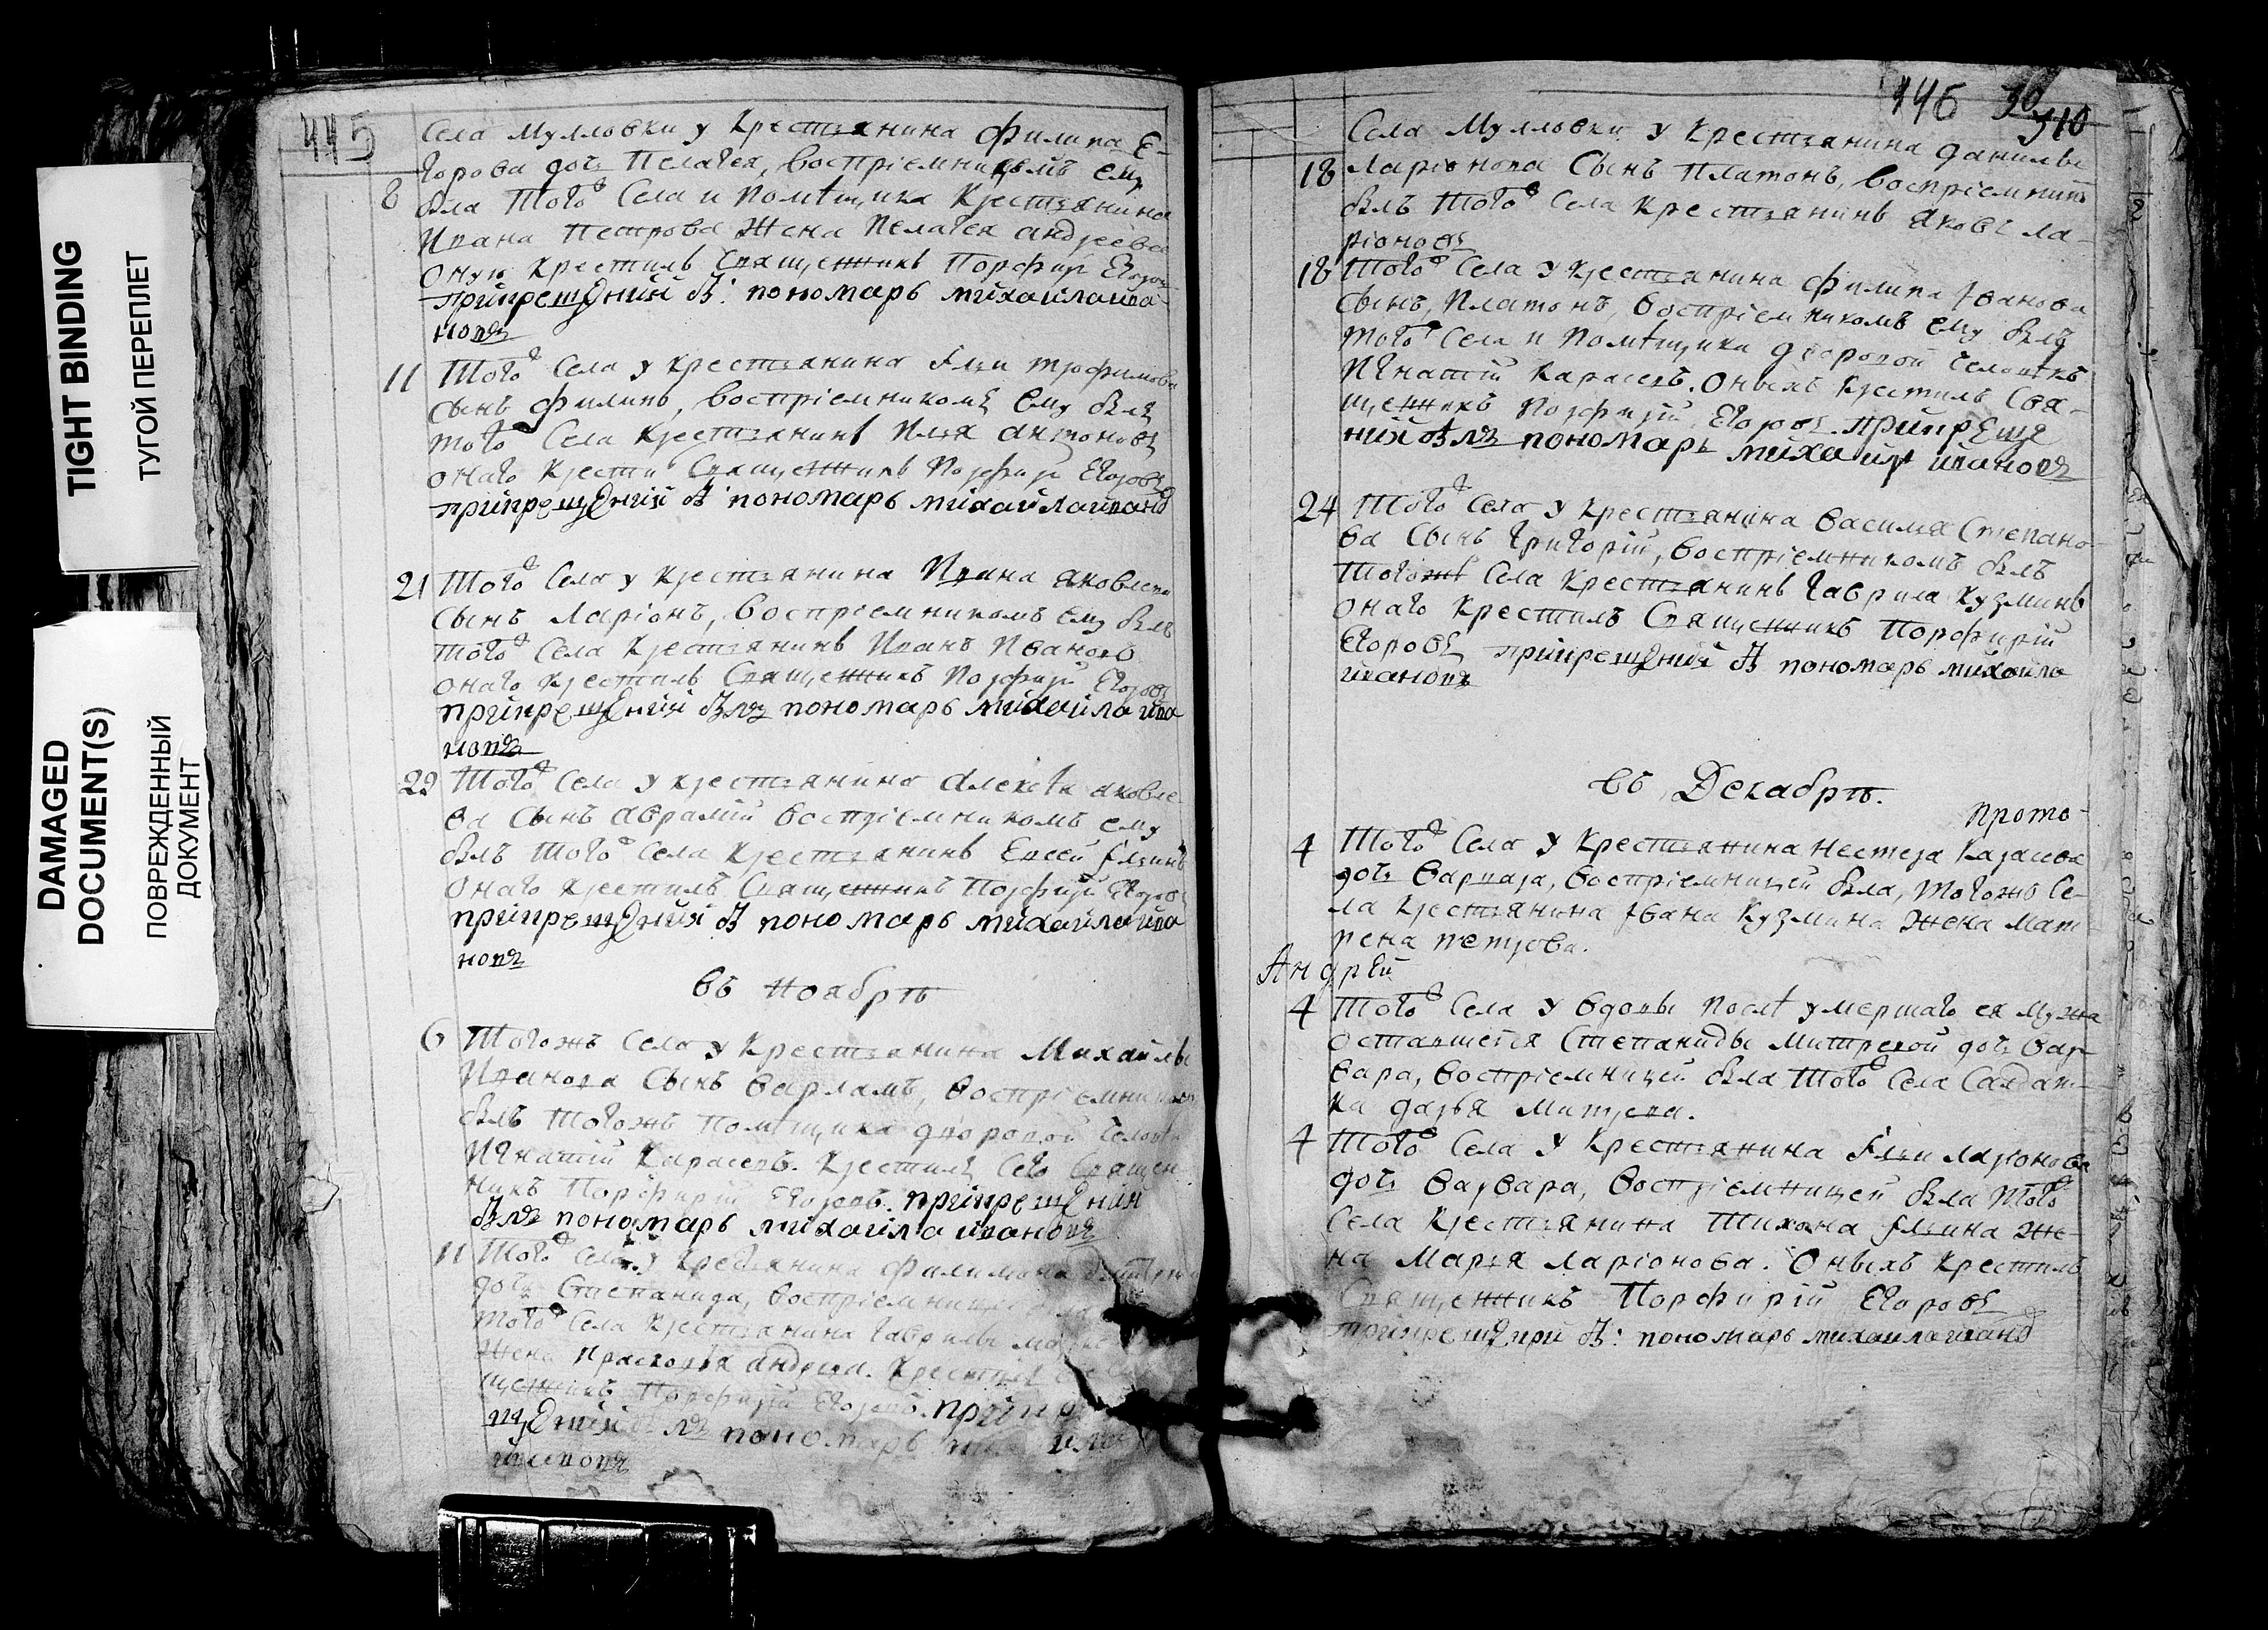 TIGHT BINDING
ТУГОЙ ПЕРЕПЛЕТ
DAMAGED
DOCUMENT(S)
ПОВРЕЖДЕННЫЙ
ДОКУМЕНТ
445
Села Мулловки у Крестьянина Филипа Е-
горова дочь Пелагея, воспріемникомъ ему
8 была того Села и Помѣщика Крестьянина
Ивана Петрова Жена Пелагея андреева
оную Крестилъ Священникъ Порфирї Егоровъ
прикрещении Б: пономарь михаила ива
новъ
11 Того Села у крестьянина Ильи трофимова
сынъ филипъ, воспріемникомъ ему былъ
того Села Крестьянинъ Илья антоновъ
онаго Крести Священникъ Порфирї Егоровъ
прикрещении Б: пономарь михаила иванов
21 Того Села у крестьянина Ивана яковлева
сынъ Ларіонъ, воспріемникомъ ему былъ
того Села Крестьянинъ Иванъ Ивановъ
онаго крестилъ Священникъ Порфирї Егоровъ
прикрещении Былъ пономарь михаила ива
новъ
22 Того Села у крестьянина Алексѣя яковле-
ва Сынъ аврамій воспріемникомъ ему
былъ того Села Крестьянинъ Евсей Ильинъ
Онаго крестилъ Священникъ Порфирї Егоровъ
прикрещении Б пономарь михаила ива
новъ
въ Ноябрѣ
6 Тогожъ Села у Крестьянина Михайлы
Иванова Сынъ Варламъ, воспріемникомъ
былъ тогожъ Помѣщика дворовой Человѣкъ
Игнатій Карасевъ. Крестилъ Сего Священ
никъ Порфирій Егоровъ. прикрещении
Былъ пономарь михаила ивановъ
11 Того Села у Крестьянина Филимона
дочь Степанида, воспріемницей
того Села Крестьянина Гаврилы
Жена Прасковья андреева. Крестилъ
щенникъ Порфирїй Егоровъ. прикр
щении былъ пономарь
ивановъ
446 310
Села Мулловки у Крестьянина Данилы
18 Ларіонова Сынъ Платонъ, воспріемник
былъ того Села Крестьянинъ яковъ Ла-
ріоновъ
18 Того Села у Крестьянина Филипа Іванова
Сынъ, Платонъ, воспріемникомъ ему былъ
того Села и Помѣщика дворовой Человѣкъ
Игнатій Карасевъ. Оныхъ крестилъ Свя-
щенникъ Порфирій Егоровъ. прикреще
нии былъ пономарь михаилъ ивановъ
24 Того Села у Крестьянина василья Степано-
ва Сынъ Григорій, воспріемникомъ былъ
тогожъ Села Крестьянинъ Гаврила Кузминъ
онаго Крестилъ Священникъ Порфирїй
Егоровъ прикрещении Б пономарь михаила
ивановъ
въ Декабрѣ.
Прото-
4 Того Села у Крестьянина Нестера Карасева
дочь Варвара, воспріемницей была, тогожъ Се-
ла Крестьянина Івана Кузмина Жена Мат-
рена петрова.
Андрей
4 Того Села у вдовы послѣ умершаго ея мужа
оставшейся Степаниды Митревой дочь Вар-
вара, воспріемницей была того Села Салдат-
ка дарья митрева.
4 Того Села у Крестьянина Ильи ларіонова
дочь Варвара, воспріемницей была того
Села Крестьянина Тихона Ильина Же-
на Марья ларіонова. Оныхъ Крестилъ
Священникъ Порфирій Егоровъ
прикрещении Б: пономарь михаила иванов